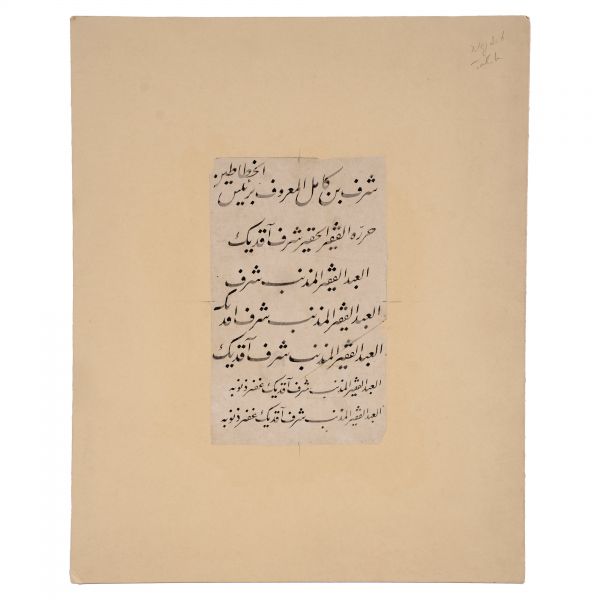 شرف بن كامل المعروف برئيس الخطاطين
حرره الفقير الحقير شرف آقديك
العبد الفقير المذنب شرف
العبد الفقير المذنب شرف اقديك
العبد الفقير المذنب شرف آقديك
العبد الفقير المذنب شرف آقديك غفر ذنوبه
العبد الفقير المذنب شرف آقديك غفر ذنوبه